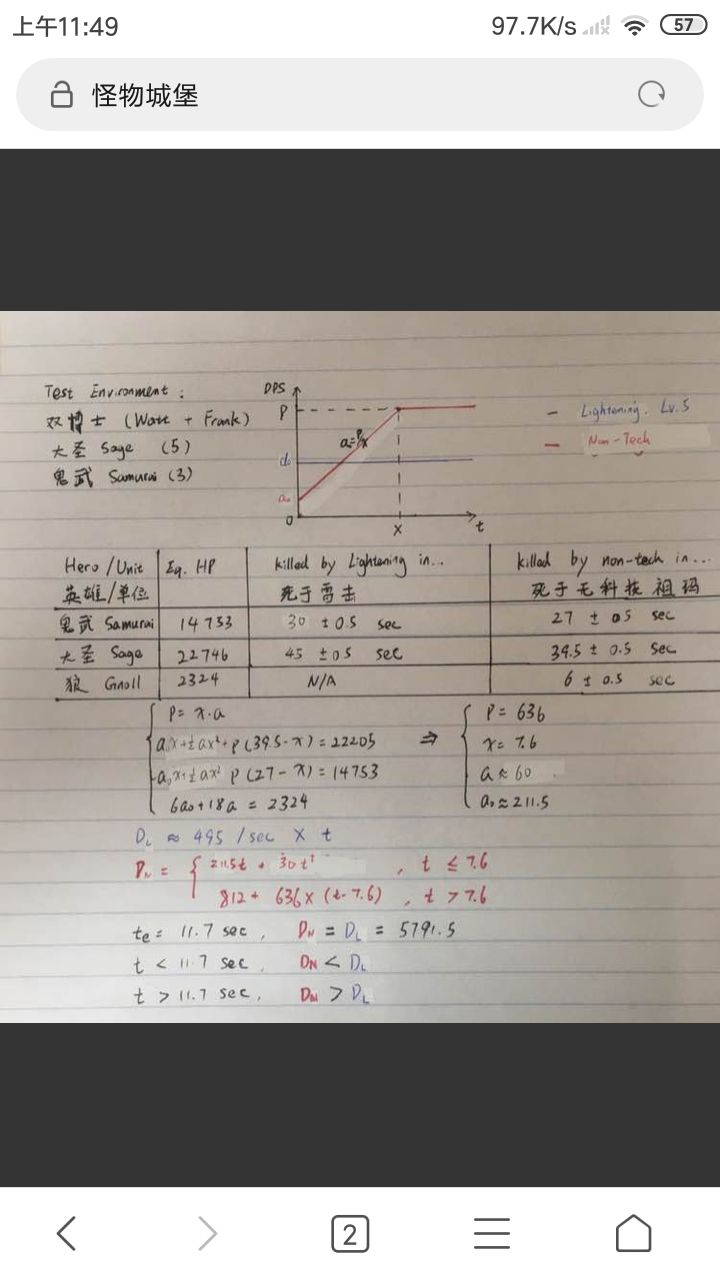 上午11:49 97.7K/s 57
怪物城堡
Test Environment :
双博士 (Watt + Frank)
大圣 Sage (5)
鬼武 Samurai (3)
DPS
P
a=P/x
d₀
a₀
0
X
t
— Lightening. Lv.5
— Non-Tech
Hero/Unit Eq. HP killed by Lightening in... killed by non-tech in...
英雄/单位 死于雷击 死于无科技祖玛
鬼武 Samurai 14753 30 ±0.5 sec 27 ± 0.5 sec
大圣 Sage 22746 45 ±0.5 sec 39.5 ± 0.5 sec
狼 Gnoll 2324 N/A 6 ± 0.5 sec
P = x·a P = 636
a₀x+½ax²+P(39.5-x) = 22205 ⇒ x = 7.6
a₀x+½ax² P(27-x) = 14753 a ≈ 60
6a₀+18a = 2324 a₀ ≈ 211.5
D_L ≈ 495 /sec × t
D_N = { 211.5t + 30t² , t ≤ 7.6
812 + 636×(t-7.6) , t > 7.6
te = 11.7 sec, D_N = D_L = 5791.5
t < 11.7 sec, D_N < D_L
t > 11.7 sec, D_N > D_L
2